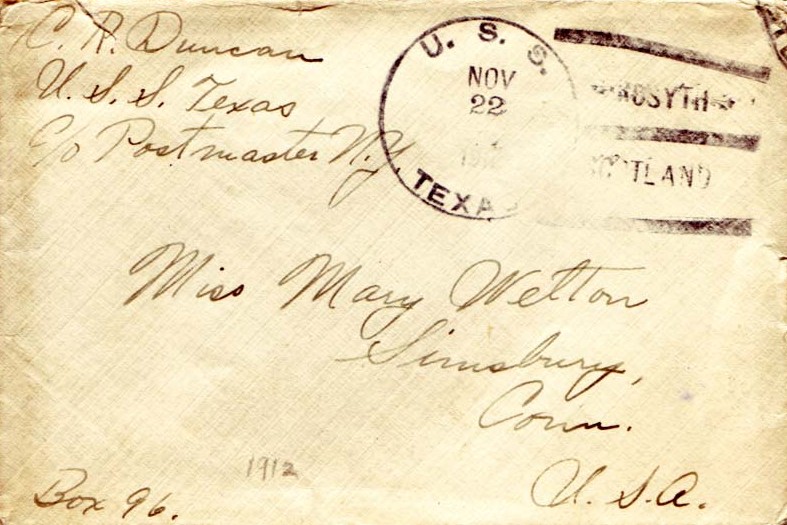 C. R. Duncan
U. S. S. Texas
c/o Postmaster N.Y.
U. S. S.
NOV
22
TEXAS
ROSYTH
SCOTLAND
Miss Mary Welton
Simsbury,
Conn.
U.S.A.
1912
Box 96.